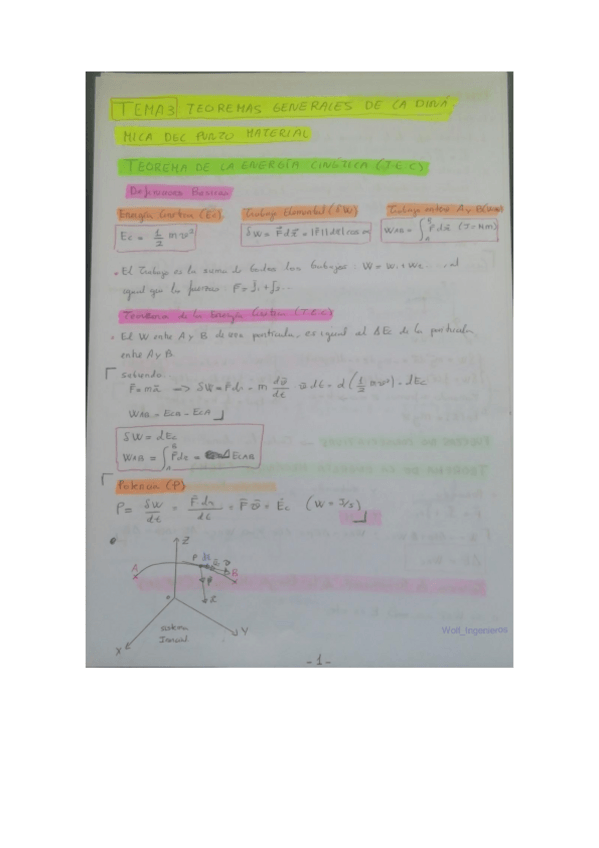 TEMA 3 TEOREMAS GENERALES DE LA DINÁ
MICA DEL PUNTO MATERIAL
TEOREMA DE LA ENERGÍA CINÉTICA (T.E.C)
Definiciones Básicas
Energía Cinética (Ec) Trabajo Elemental (δW) Trabajo entre A y B
Ec = 1/2 mv² δW = F⃗dr⃗ = |F||dr|cos α W_AB = ∫_A^B F⃗dr⃗ (J = Nm)
• El Trabajo es la suma de todos los trabajos: W = W₁ + W₂ ..., al
igual que la fuerza F = f₁ + f₂...
Teorema de la Energía Cinética (T.E.C)
• El W entre A y B de una partícula, es igual al ΔEc de la partícula
entre A y B.
sabiendo:
F = ma⃗ → δW = F dr = m dv⃗/dt v⃗ dt = d(1/2 mv²) = dEc
W_AB = E_CB - E_CA
δW = dEc
W_AB = ∫_A^B F⃗dr = E_CAB
Potencia (P)
P = δW/dt = F⃗dr/dt = F⃗ v⃗ = Ėc (W = J/s)
Z
A P B
o
sistema
Inercial
X Y
Wolf_Ingenieros
- 1 -